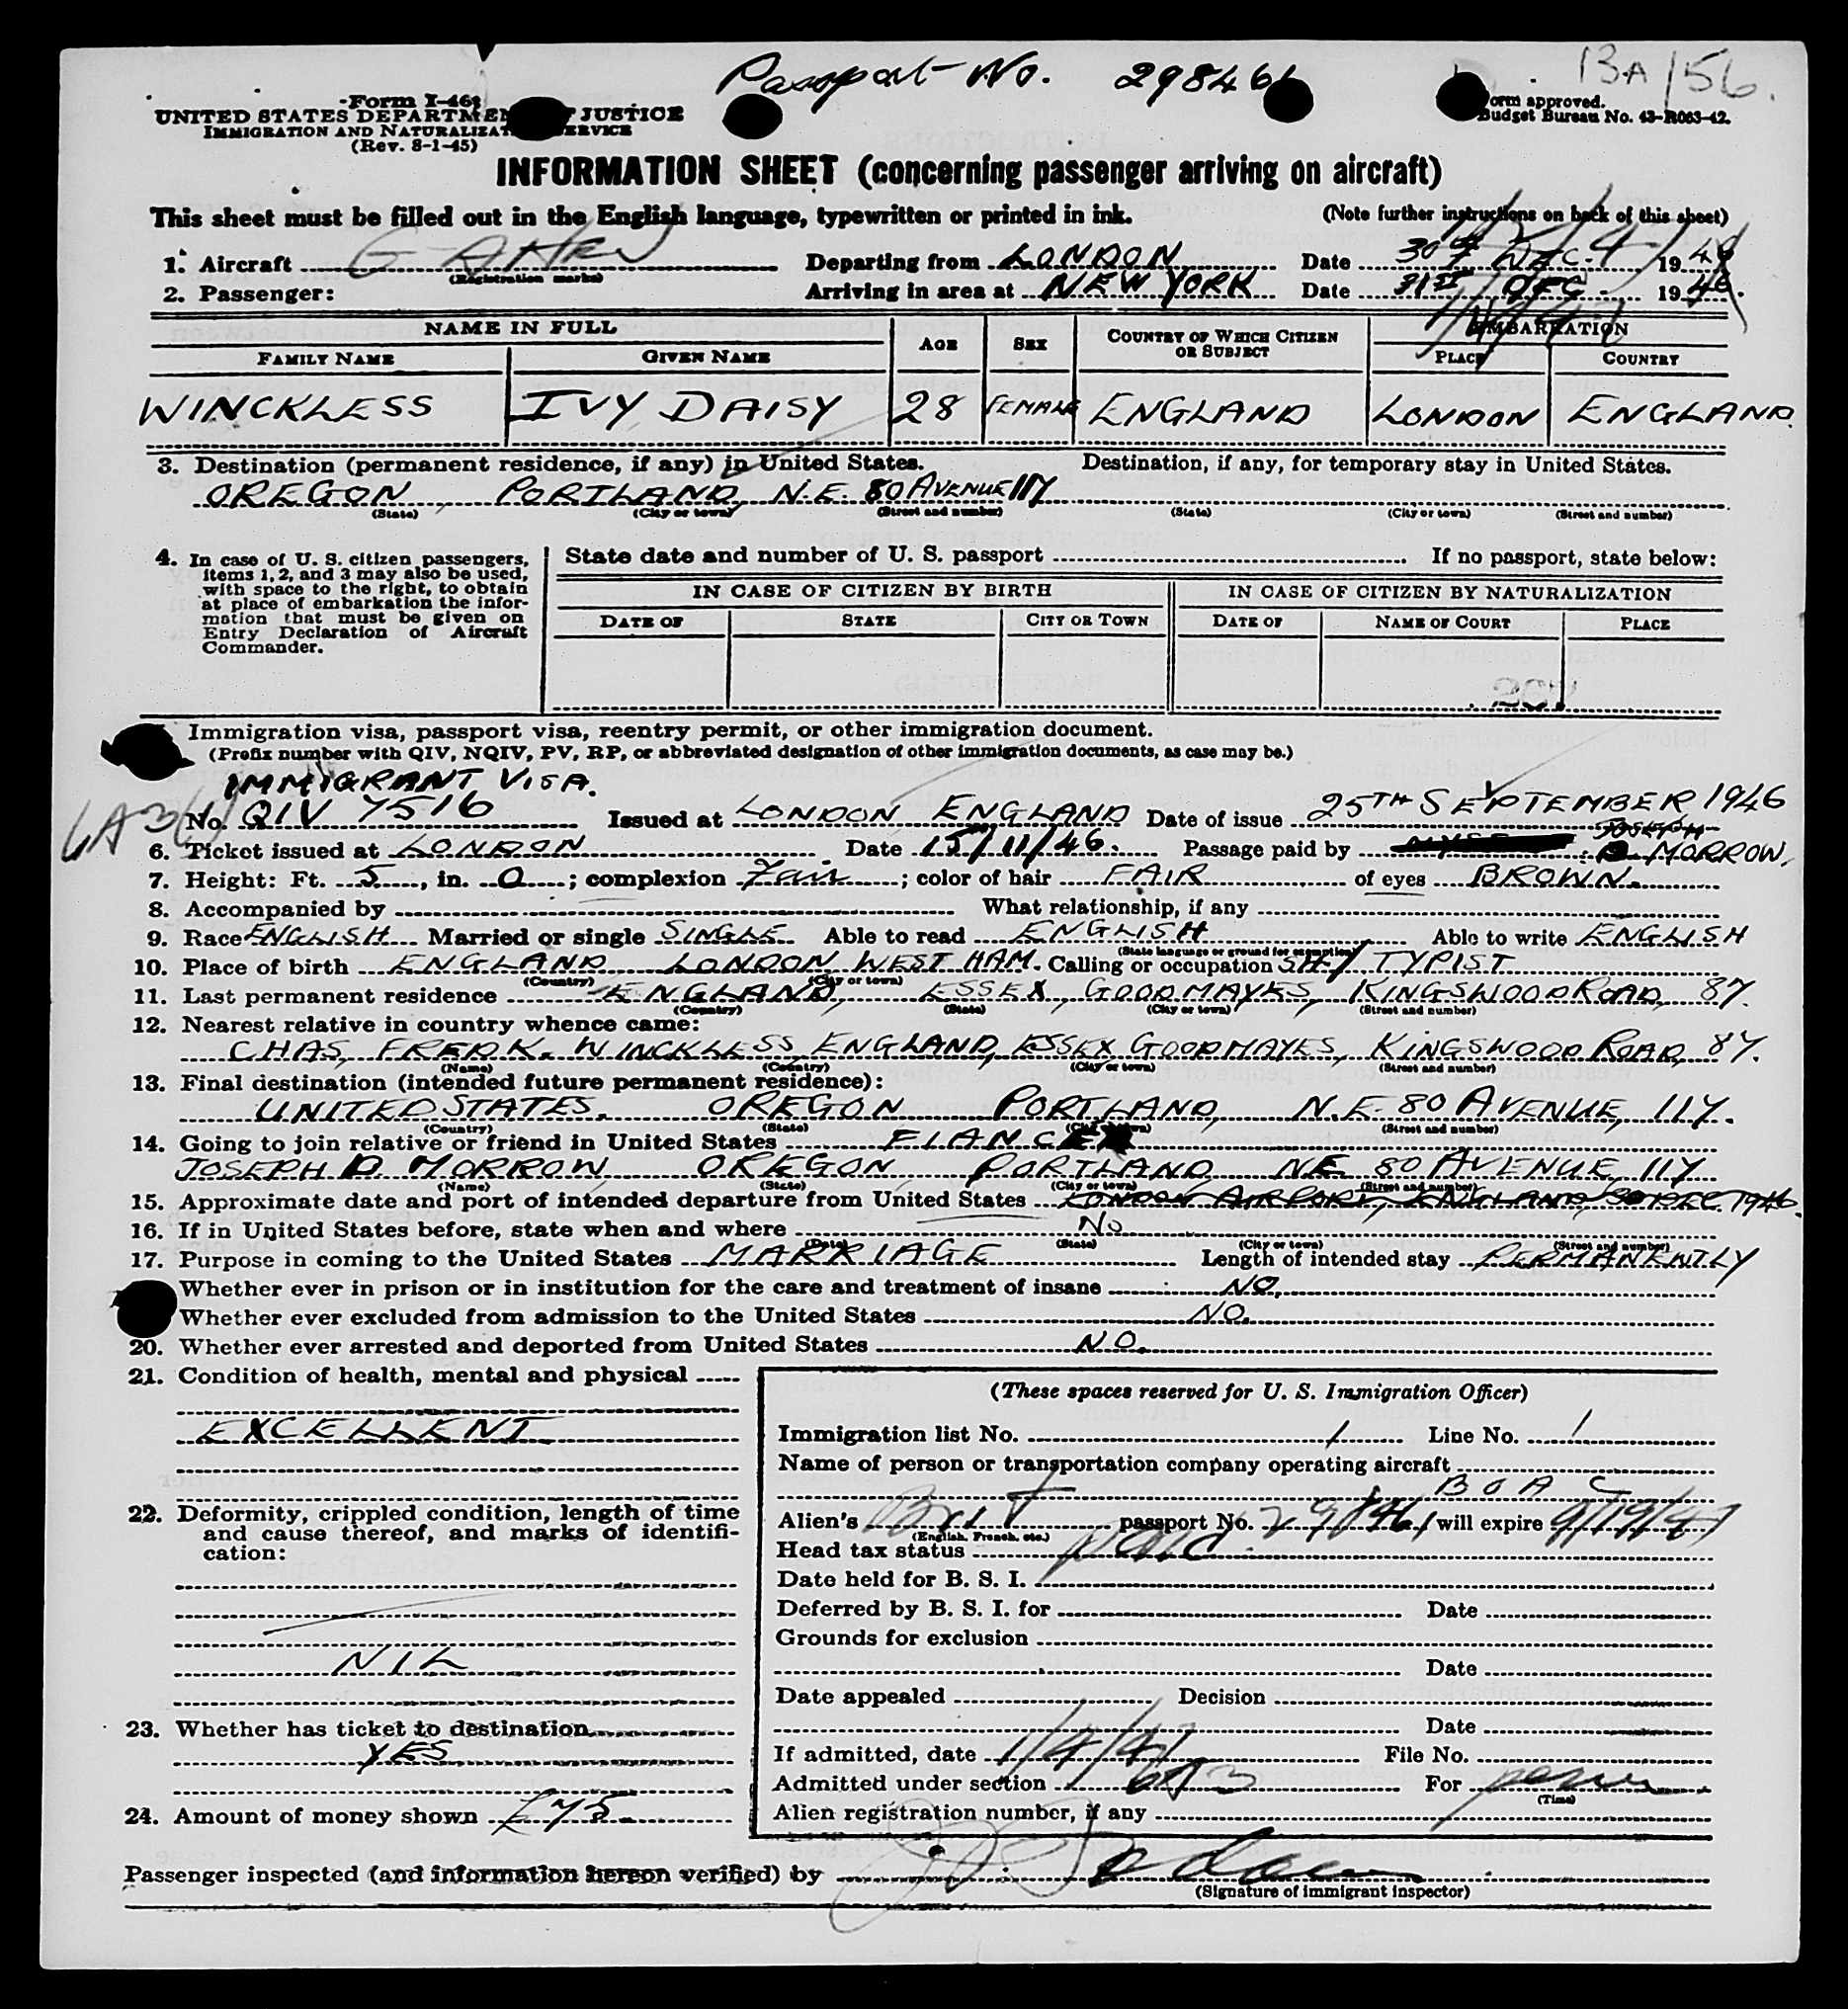 Passport No. 298461
13A/56.
Form I-466
UNITED STATES DEPARTMENT OF JUSTICE
IMMIGRATION AND NATURALIZATION SERVICE
(Rev. 8-1-45)
Form approved.
Budget Bureau No. 43-R063-42.
INFORMATION SHEET (concerning passenger arriving on aircraft)
This sheet must be filled out in the English language, typewritten or printed in ink. (Note further instructions on back of this sheet)
1. Aircraft (Registration marks) Departing from LONDON Date 30th DEC. 1946
2. Passenger: Arriving in area at NEW YORK Date 31st DEC 1946.
NAME IN FULL AGE SEX COUNTRY OF WHICH CITIZEN OR SUBJECT EMBARKATION
FAMILY NAME GIVEN NAME PLACE COUNTRY
WINCKLESS IVY DAISY 28 FEMALE ENGLAND LONDON ENGLAND.
3. Destination (permanent residence, if any) in United States. Destination, if any, for temporary stay in United States.
OREGON, PORTLAND, N.E. 80 AVENUE 117
(State) (City or town) (Street and number) (State) (City or town) (Street and number)
4. In case of U. S. citizen passengers, items 1, 2, and 3 may also be used, with space to the right, to obtain at place of embarkation the information that must be given on Entry Declaration of Aircraft Commander.
State date and number of U. S. passport If no passport, state below:
IN CASE OF CITIZEN BY BIRTH IN CASE OF CITIZEN BY NATURALIZATION
DATE OF STATE CITY OR TOWN DATE OF NAME OF COURT PLACE
Immigration visa, passport visa, reentry permit, or other immigration document.
(Prefix number with QIV, NQIV, PV, RP, or abbreviated designation of other immigration documents, as case may be.)
IMMIGRANT VISA.
No. QIV 7516 Issued at LONDON ENGLAND Date of issue 25TH SEPTEMBER 1946
JOSEPH
6. Ticket issued at LONDON Date 15/11/46. Passage paid by D. MORROW.
7. Height: Ft. 5, in. 0; complexion Fair; color of hair FAIR of eyes BROWN.
8. Accompanied by What relationship, if any
9. Race ENGLISH Married or single SINGLE Able to read ENGLISH Able to write ENGLISH
(State language or ground for exemption)
10. Place of birth ENGLAND LONDON WEST HAM. Calling or occupation SH/TYPIST
(Country) (City or town)
11. Last permanent residence ENGLAND, ESSEX, GOODMAYES, KINGSWOOD ROAD, 87.
(Country) (State) (City or town) (Street and number)
12. Nearest relative in country whence came:
CHAS. FREDK. WINCKLESS, ENGLAND, ESSEX GOODMAYES, KINGSWOOD ROAD, 87.
(Name) (Country) (City or town) (Street and number)
13. Final destination (intended future permanent residence):
UNITED STATES. OREGON PORTLAND, N.E. 80 AVENUE, 117.
(Country) (State) (City or town) (Street and number)
14. Going to join relative or friend in United States FIANCE
JOSEPH D. MORROW OREGON PORTLAND NE 80 AVENUE, 117
(Name) (State) (City or town) (Street and number)
15. Approximate date and port of intended departure from United States LONDON AIRPORT, ENGLAND, 30 DEC. 1946.
16. If in United States before, state when and where No
(Date) (State) (City or town) (Street and number)
17. Purpose in coming to the United States MARRIAGE Length of intended stay PERMANENTLY
Whether ever in prison or in institution for the care and treatment of insane NO.
Whether ever excluded from admission to the United States NO.
20. Whether ever arrested and deported from United States NO.
21. Condition of health, mental and physical
EXCELLENT
22. Deformity, crippled condition, length of time and cause thereof, and marks of identification:
NIL
23. Whether has ticket to destination
YES
24. Amount of money shown £75.
(These spaces reserved for U. S. Immigration Officer)
Immigration list No. 1 Line No. 1
Name of person or transportation company operating aircraft
BOAC
Alien's Brit passport No. 298461 will expire 9/19/47
(English, French, etc.)
Head tax status paid
Date held for B. S. I.
Deferred by B. S. I. for Date
Grounds for exclusion
Date
Date appealed Decision
Date
If admitted, date 1/4/47 File No.
Admitted under section 6A3 For perm
(Time)
Alien registration number, if any
Passenger inspected (and information hereon verified) by
(Signature of immigrant inspector)